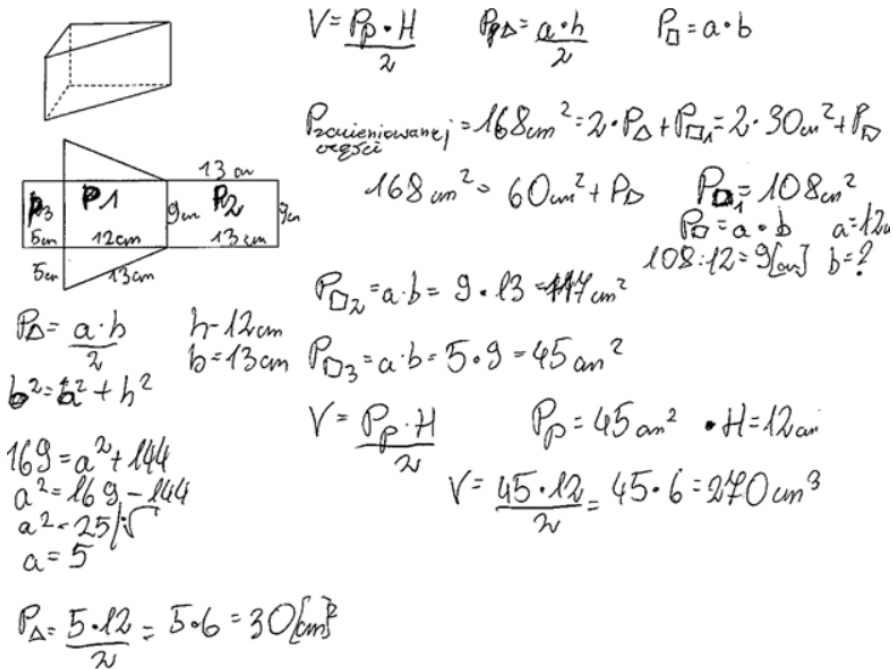 V = Pp · H / 2    P△ = a · h / 2    P□ = a · b
Pzacieniowanej części = 168 cm² = 2 · P△ + P□1 = 2 · 30 cm² + P□
168 cm² = 60 cm² + P□    P□1 = 108 cm²
P□ = a · b    a = 12
108 : 12 = 9 [cm]    b = ?
13 cm
P3    P1    9 cm    P2    9 cm
5 cm    12 cm    13 cm
5 cm    13 cm
P□2 = a · b = 9 · 13 = 117 cm²
P△ = a · h / 2    h - 12 cm
b = 13 cm
P□3 = a · b = 5 · 9 = 45 cm²
b² = a² + h²
V = Pp · H / 2    Pp = 45 cm²    · H = 12 cm
169 = a² + 144
a² = 169 - 144
V = 45 · 12 / 2 = 45 · 6 = 270 cm³
a² = 25 /√
a = 5
P△ = 5 · 12 / 2 = 5 · 6 = 30 [cm]²